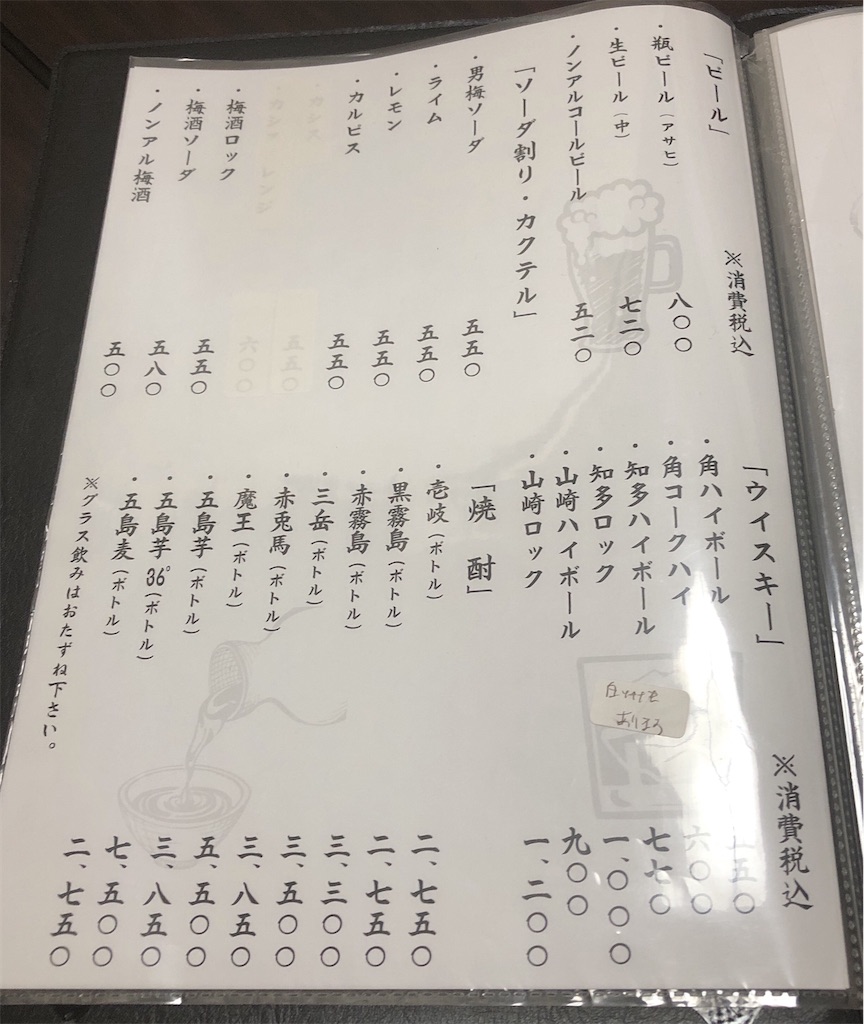 「ビール」 ※消費税込
・瓶ビール（アサヒ） 八〇〇
・生ビール（中） 七二〇
・ノンアルコールビール 五二〇
「ソーダ割り・カクテル」
・男梅ソーダ 五五〇
・ライム 五五〇
・レモン 五五〇
・カルピス 五五〇
・カシス 五五〇
六〇〇
・梅酒ロック 五五〇
・梅酒ソーダ 五八〇
・ノンアル梅酒 五〇〇
「ウイスキー」 ※消費税込
・角ハイボール 五〇
・角コークハイ 六〇〇
・知多ハイボール 七七〇
・知多ロック 一、〇〇〇
・山崎ハイボール 九〇〇
・山崎ロック 一、二〇〇
「焼 酎」
・壱岐（ボトル） 二、七五〇
・黒霧島（ボトル） 二、七五〇
・赤霧島（ボトル） 三、三〇〇
・三岳（ボトル） 三、五〇〇
・赤兎馬（ボトル） 三、八五〇
・魔王（ボトル） 五、五〇〇
・五島芋（ボトル） 三、八五〇
・五島芋36°（ボトル） 七、五〇〇
・五島麦（ボトル） 二、七五〇
※グラス飲みはおたずね下さい。